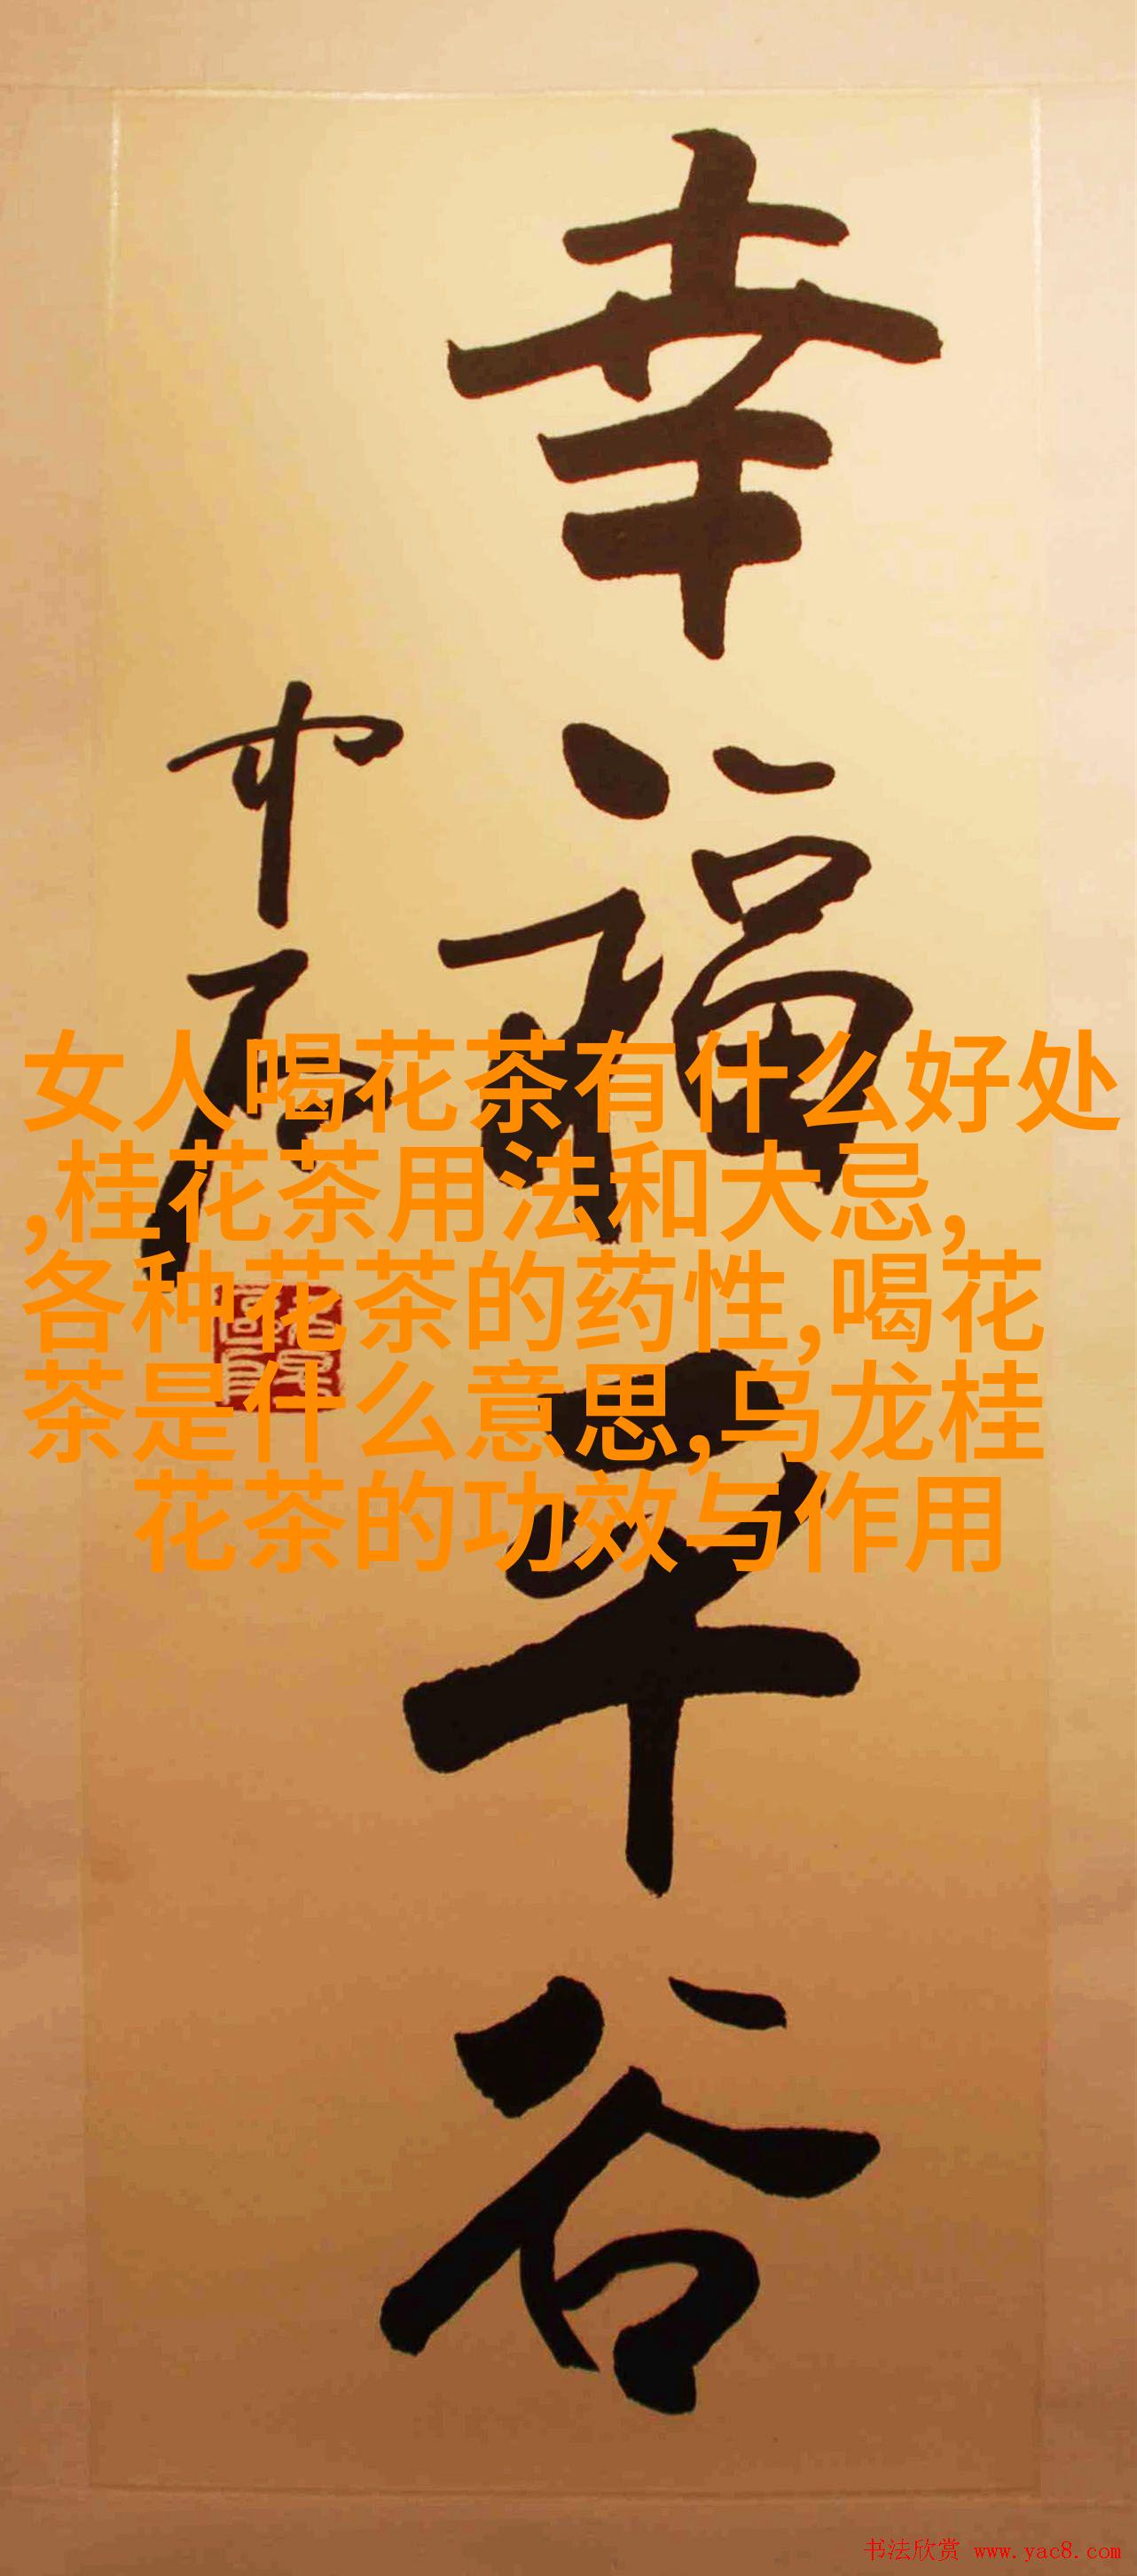 幸福平谷
女人喝花茶有什么好处
,桂花茶用法和大忌,
各种花茶的药性,喝花
茶是什么意思,乌龙桂
花茶的功效与作用
书法欣赏 www.yac8.com